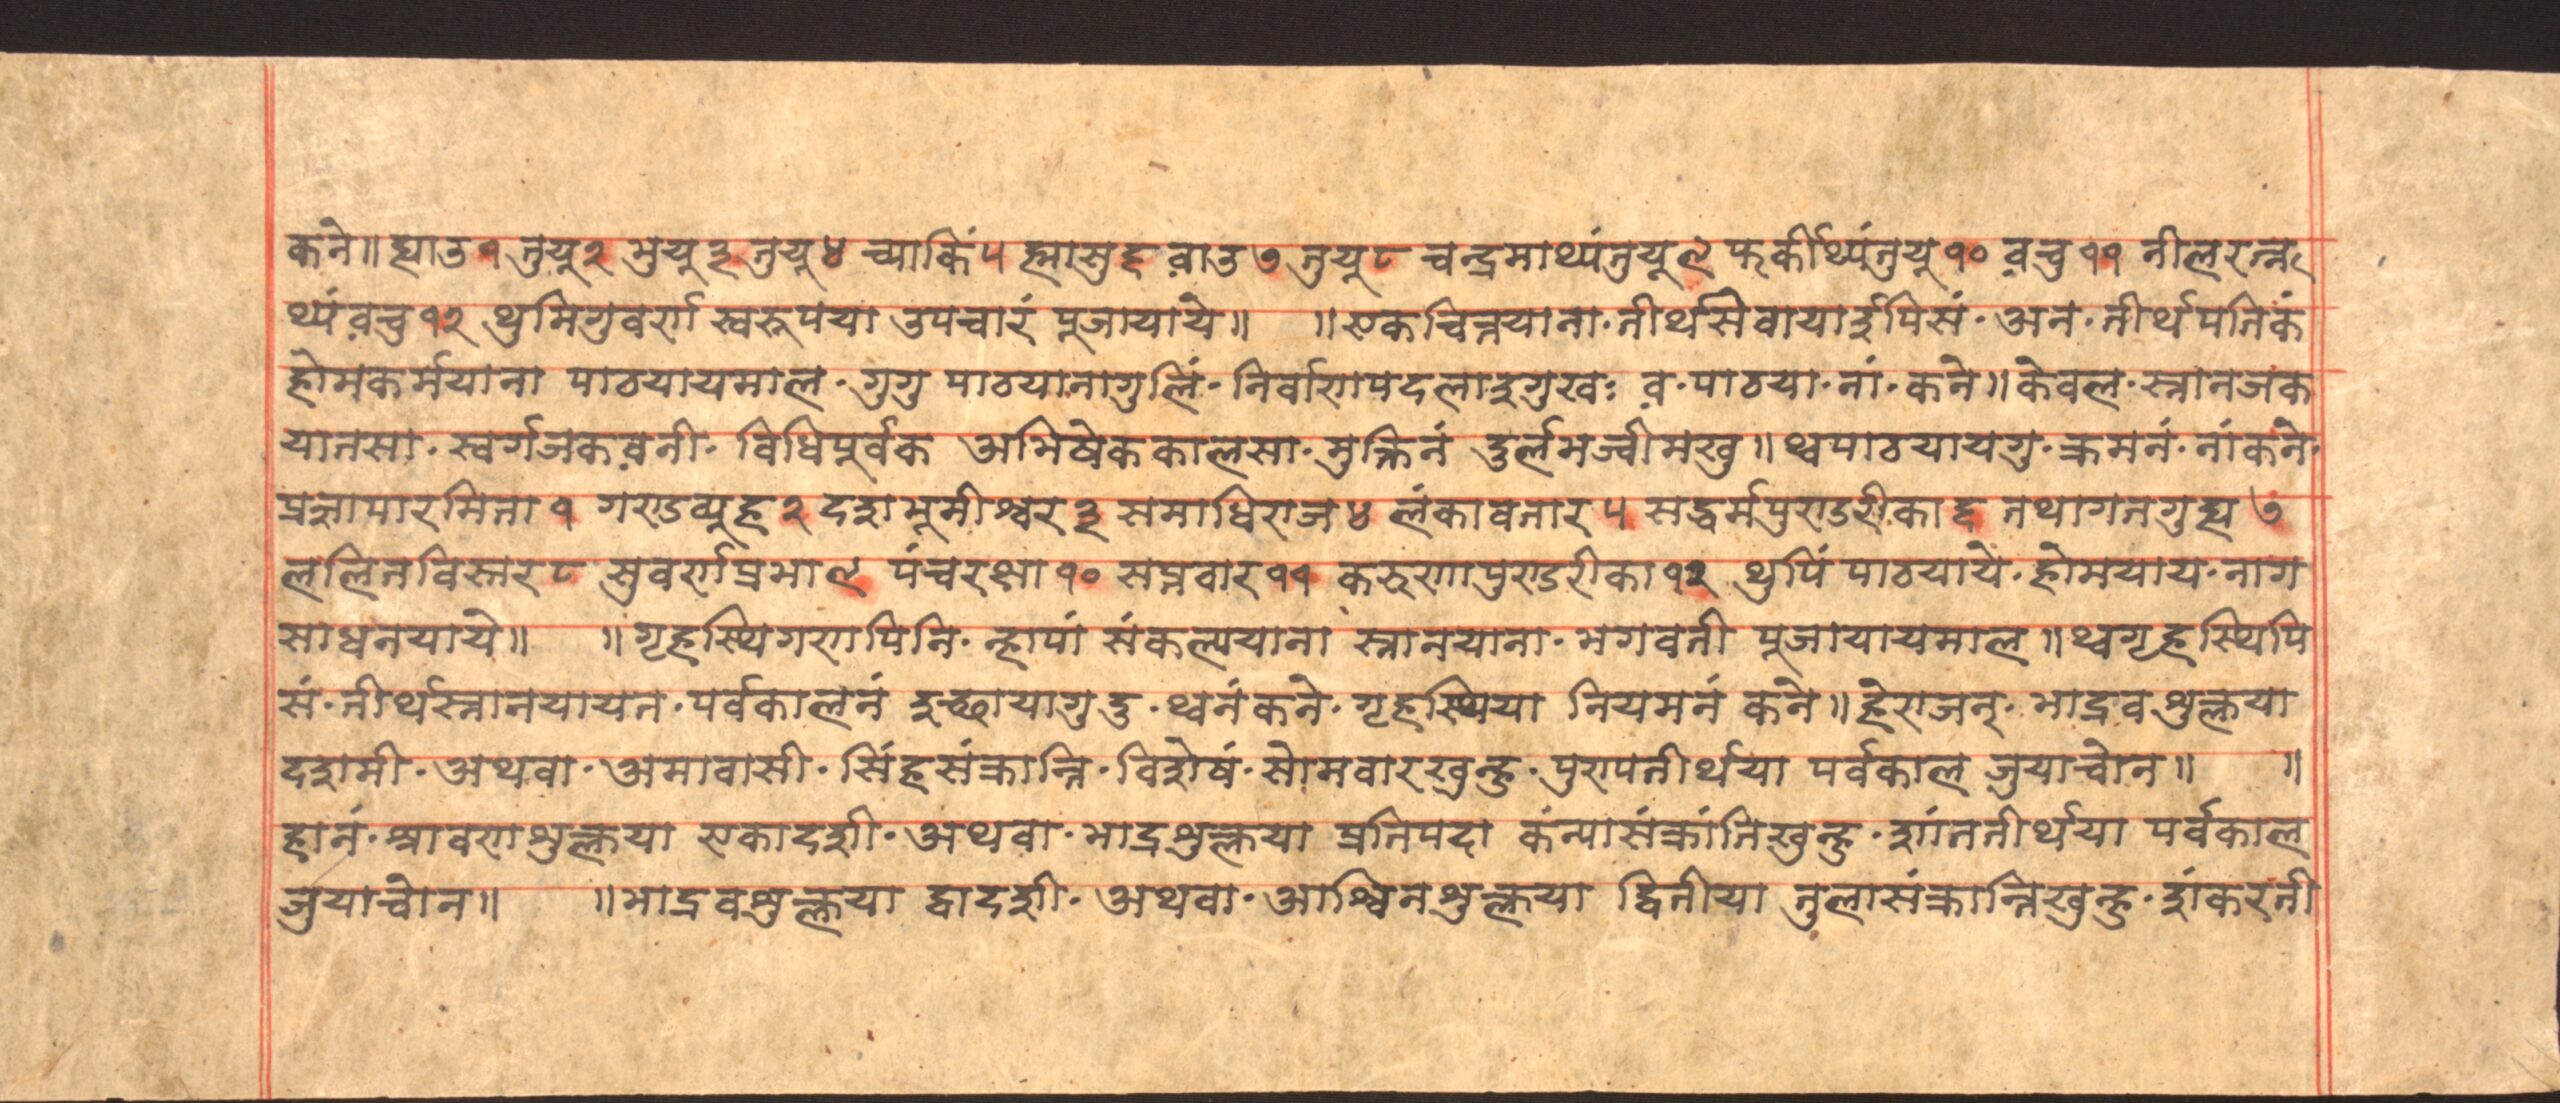 कने॥ ह्याउ १ तुयू २ भुयू ३ तुयू ४ च्याकिं ५ ह्मासु ६ वाउ ७ तुयू ८ चन्द्रमाथ्यंतुयू ९ फर्कीथ्यिंतुयू १० वचु ११ नीलरत्न
थ्यं वचु १२ थुमिगुवर्ण स्वरूपया उपचारं पूजायाये॥ ॥एकचित्तयाना·तीर्थसेवायाईपिसं·अन·तीर्थपतिकं
होमकर्मयाना पाठयायमाल·गुगु पाठयानागुलिं·निर्वाणपदलाइगुखः व·पाठया·नां·कने॥केवल·स्नानजक
यानसा·स्वर्गजकवनी·विधिपूर्वक अभिषेककालसा·मुक्तिनं दुर्लभज्वीमखु॥थ्वपाठयायगु·क्रमनं·नांकने·
प्रज्ञापारमिता १ गण्डव्यूह २ दशभूमीश्वर ३ समाधिराज ४ लंकावतार ५ सद्धर्मपुण्डरीका ६ तथागतगुह्य ७
ललितविस्तर ८ सुवर्णप्रभा ९ पंचरक्षा १० सप्तवार ११ करुणापुण्डरीका १२ थुपिं पाठयाये·होमयाय·नाग
साधनयाये॥ ॥गृहस्थिगणपिनि·न्हापां संकल्पयाना स्नानयाना·भगवती पूजायायमाल॥थ्वगृहस्थिपि
सं·तीर्थस्नानयायत·पर्वकालनं इच्छायागुदु·थ्वनंकने·गृहस्थिया नियमनं कने॥हेराजन्·भाद्रवशुक्लया
दशमी·अथवा·अमावासी·सिंहसंक्रान्ति·विशेषं·सोमवारखुन्हु·पुण्यतीर्थया पर्वकाल जुयाचोन॥ ॥
हानं·श्रावणशुक्लया एकादशी·अथवा·भाद्रशुक्लया प्रतिपदा कंन्यासंक्रांतिखुन्हु·शांततीर्थया पर्वकाल
जुयाचोन॥ ॥भाद्रवशुक्लया द्वादशी·अथवा·आश्विनशुक्लया द्वितीया तुलासंक्रान्तिखुन्हु·शंकरती